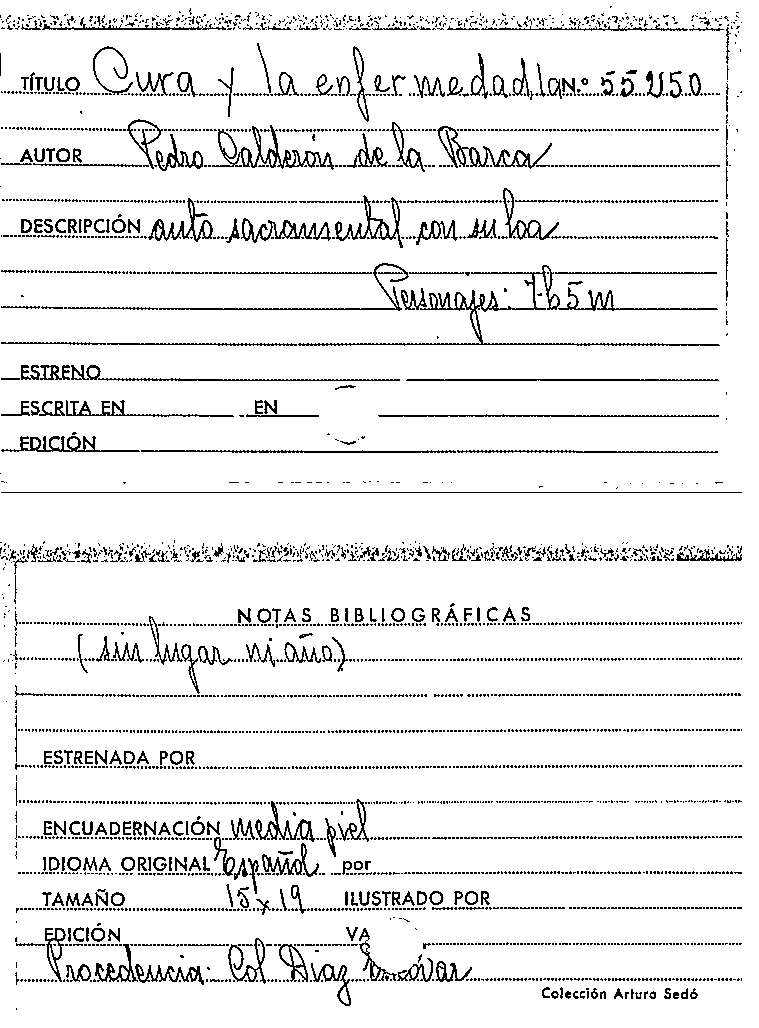 TÍTULO Cura y la enfermedad, la N.º 55250
AUTOR Pedro Calderón de la Barca
DESCRIPCIÓN auto sacramental con su loa
Personajes: 7 h 5 m
ESTRENO
ESCRITA EN EN
EDICIÓN
NOTAS BIBLIOGRÁFICAS
(sin lugar ni año)
ESTRENADA POR
ENCUADERNACIÓN media piel
IDIOMA ORIGINAL Español por
TAMAÑO 15 x 19 ILUSTRADO POR
EDICIÓN VA
Procedencia: Col Díaz
Colección Arturo Sedó